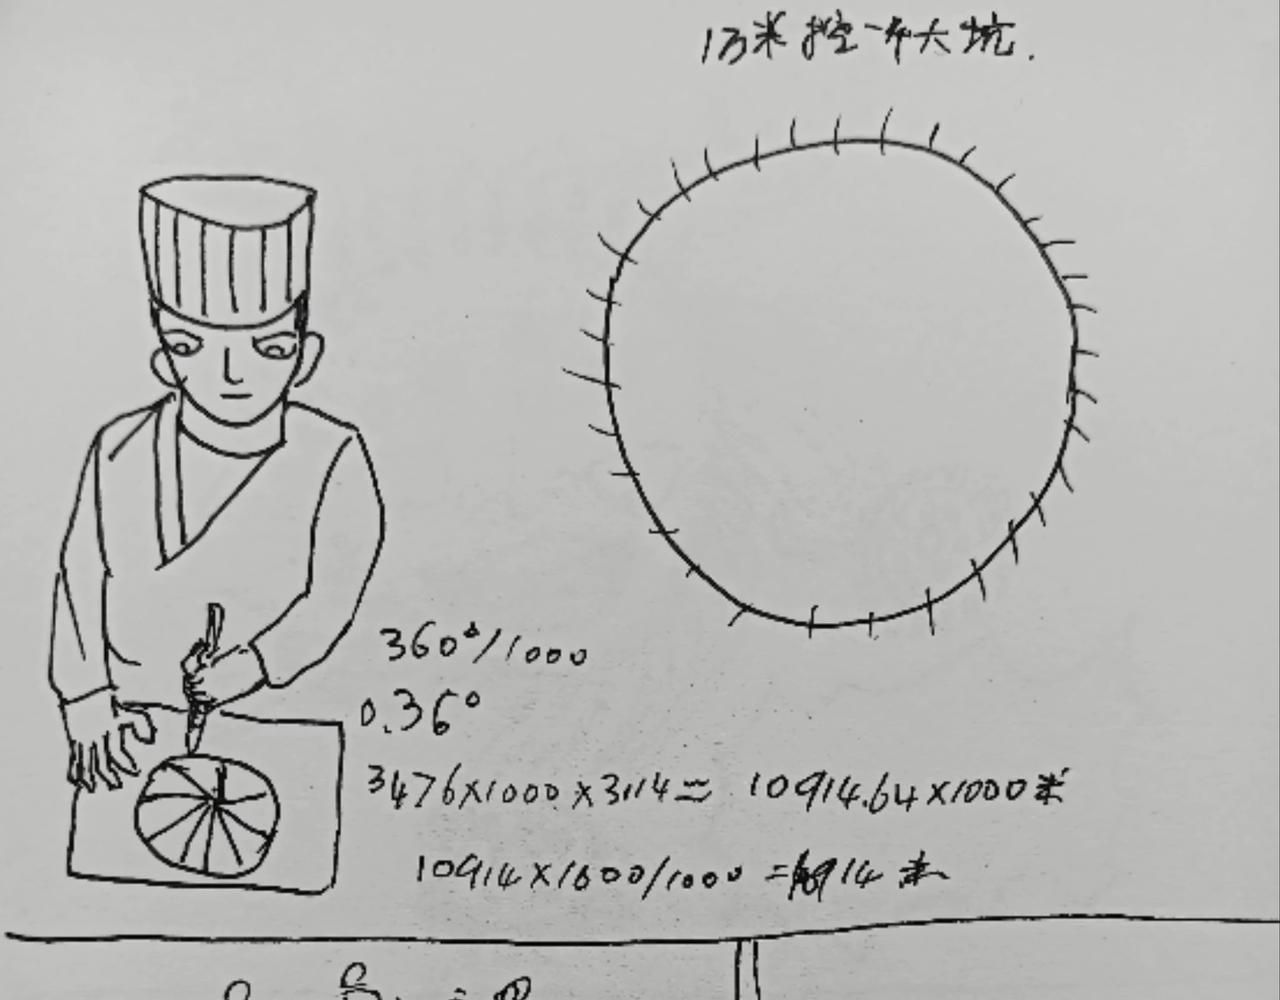 1万米挖一个大坑.
360°/1000
0.36°
3476×1000×3.14= 10914.64×1000米
10914×1000/1000 = 914米